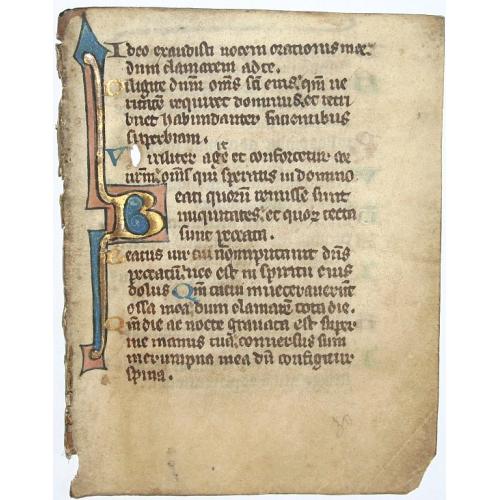 Ideo exaudisti uocem orationis mee
dum clamarem ad te.
Diligite dnm om̄s sc̄i eius. qm̄ ue
ritatem requiret dominus. et retri
buet habundanter facientibus
superbiam.
Uiriliter agite et confortetur cor
urm̄. om̄s qui speratis in domino
Beati quoru̅ remisse sunt
iniquitates. et quor tecta
sunt peccata.
Beatus uir cui non imputauit dn̄s
peccatu̅. nec est in spiritu eius
dolus Qm̄ tacui inueterauerunt
ossa mea. dum clamare̅ tota die.
Qm̄ die ac nocte grauata est super
me manus tua. conuersus sum
in erumpna mea du̅ configitur
spina.